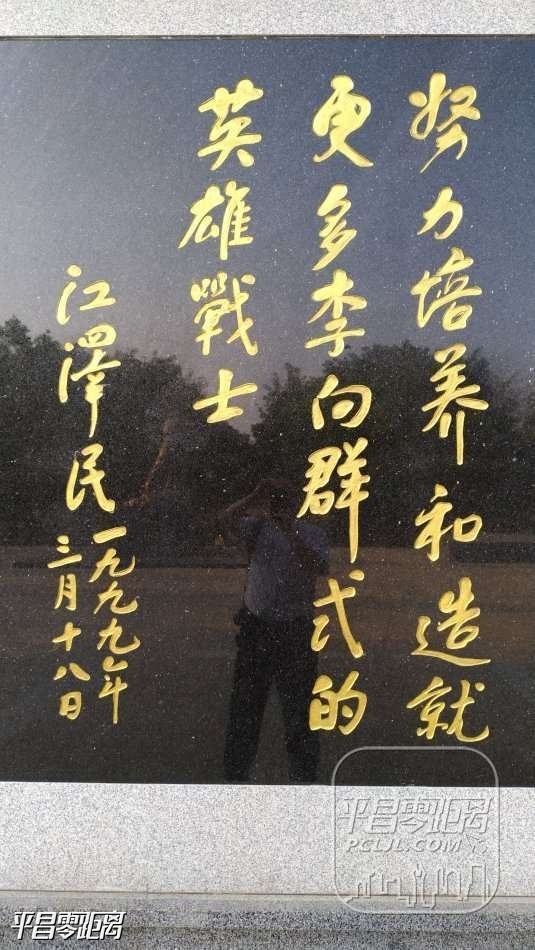 努力培养和造就
更多李向群式的
英雄戰士
江泽民
一九九九年
三月十八日
平昌零距离
PCLJL.COM
平昌零距离